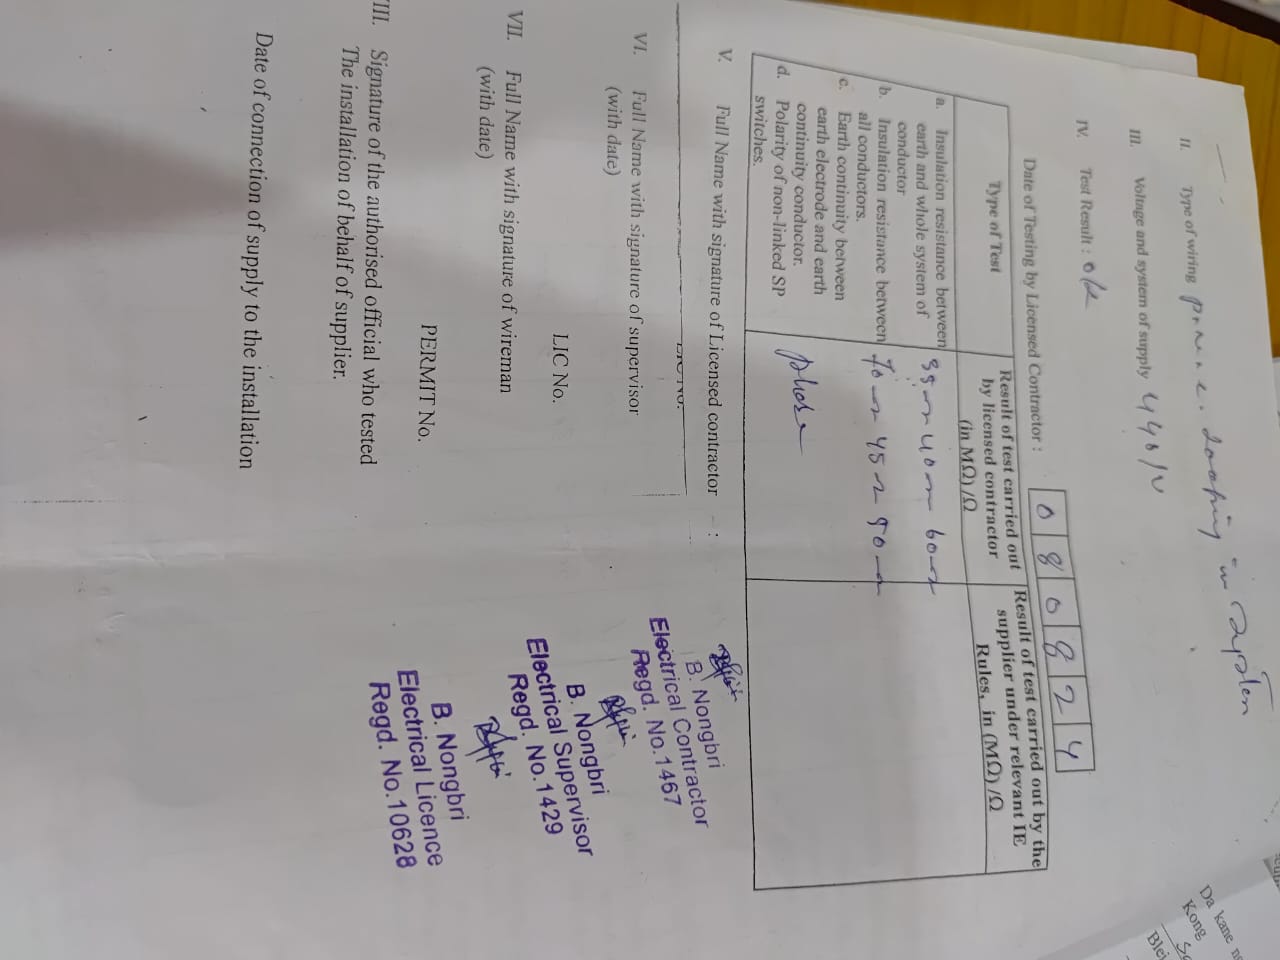 II. Type of wiring
III. Voltage and system of supply 440/V
IV. Test Result : ok
Date of Testing by Licensed Contractor : 0 8 0 8 2 4
Type of Test
Result of test carried out by licensed contractor (in MΩ)/Ω
Result of test carried out by the supplier under relevant IE Rules, in (MΩ)/Ω
a. Insulation resistance between
earth and whole system of
conductor
b. Insulation resistance between
all conductors.
c. Earth continuity between
earth electrode and earth
continuity conductor.
d. Polarity of non-linked SP
switches.
phase
V. Full Name with signature of Licensed contractor - :
B. Nongbri
Electrical Contractor
Regd. No.1467
LIC No.
VI. Full Name with signature of supervisor
(with date)
B. Nongbri
Electrical Supervisor
Regd. No.1429
LIC No.
VII. Full Name with signature of wireman
(with date)
B. Nongbri
Electrical Licence
Regd. No.10628
PERMIT No.
III. Signature of the authorised official who tested
The installation of behalf of supplier.
Date of connection of supply to the installation
Da kane
Kong
Blei